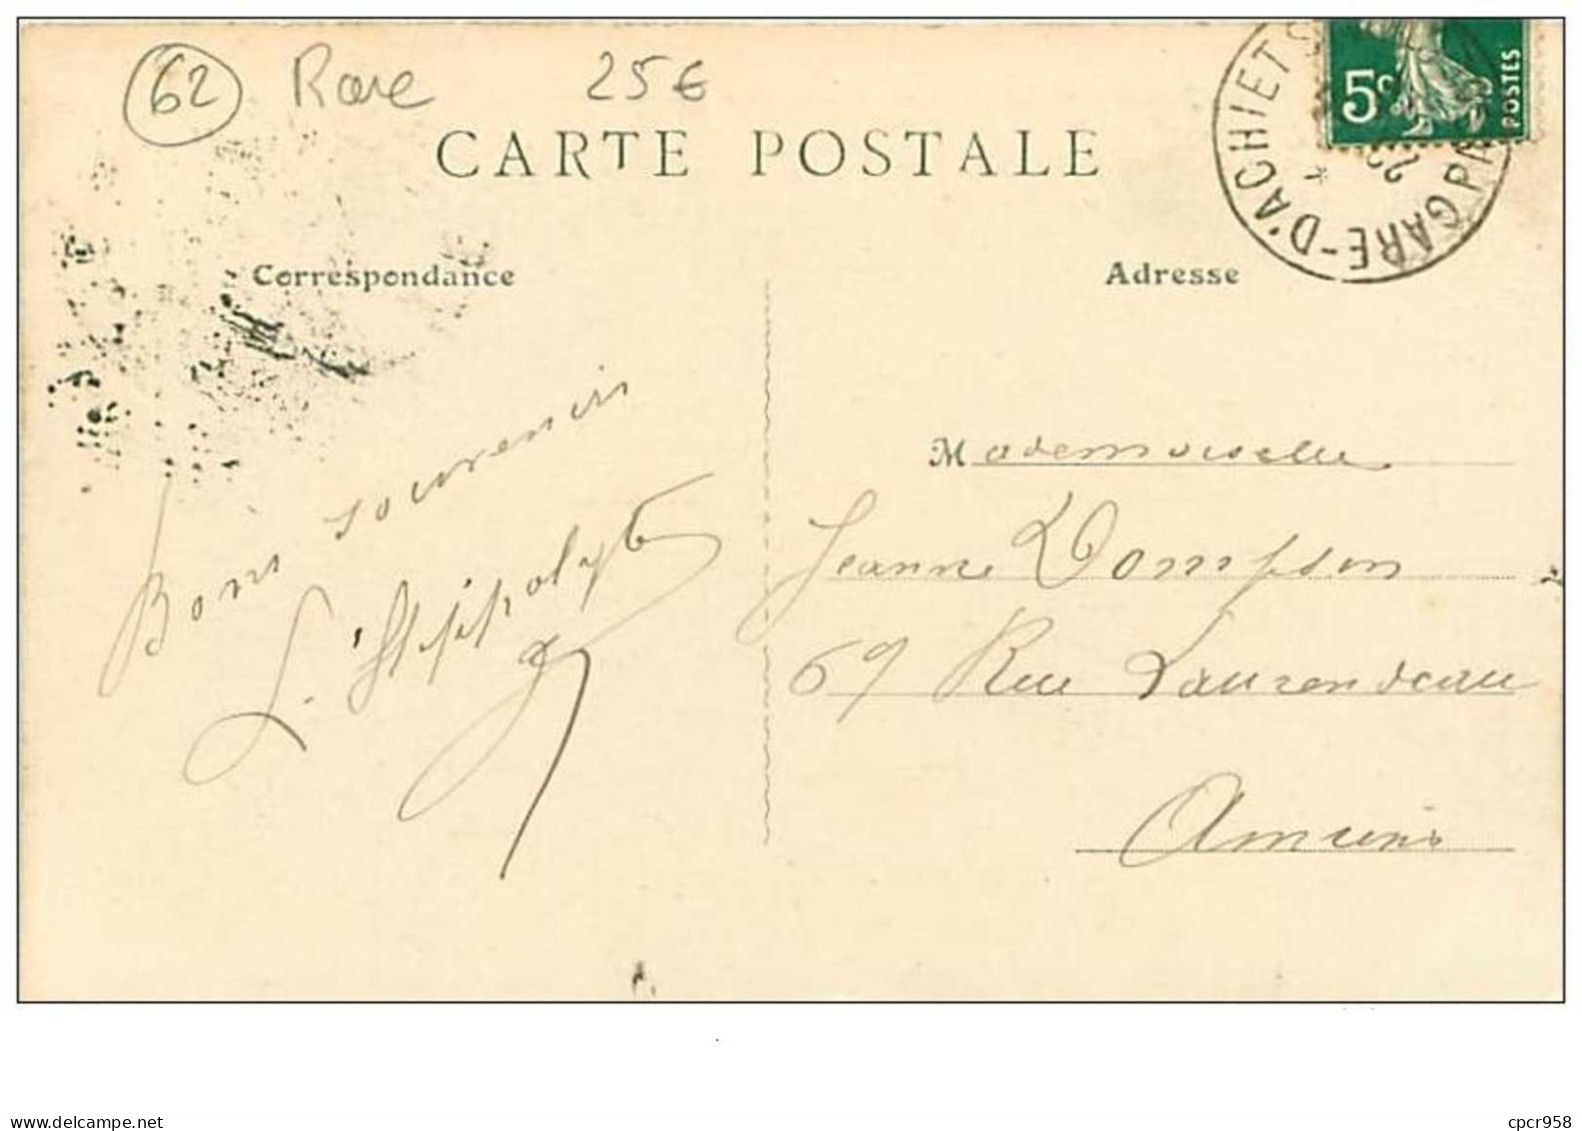 62 Rare 25€
CARTE POSTALE
GARE-D'ACHIET
5c
POSTES
Correspondance
Adresse
Bons souvenirs
Mademoiselle
Jeanne Dompson
69 Rue Laurendeau
Amiens
cpcr958
www.delcampe.net